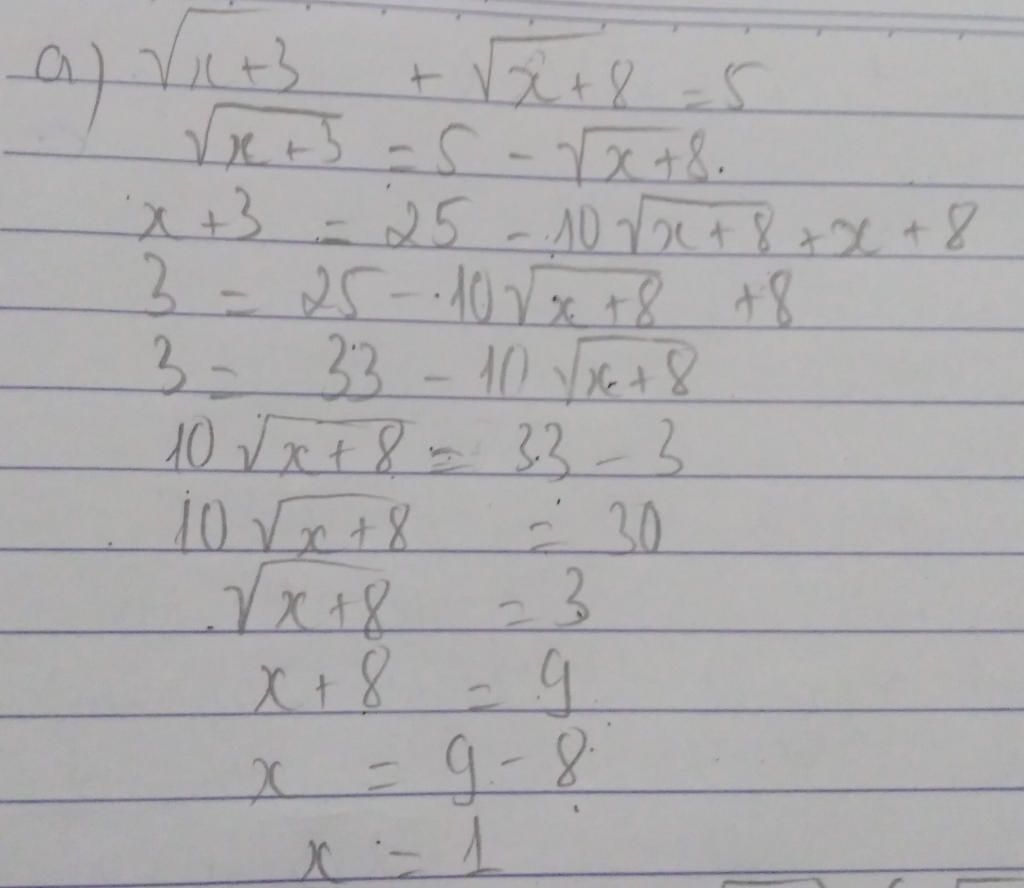 a) √x+3 + √x+8 = 5
√x+3 = 5 - √x+8.
x+3 = 25 - 10√x+8 + x + 8
3 = 25 - 10√x+8 + 8
3 = 33 - 10√x+8
10√x+8 = 33 - 3
10√x+8 = 30
√x+8 = 3
x+8 = 9
x = 9 - 8
x = 1